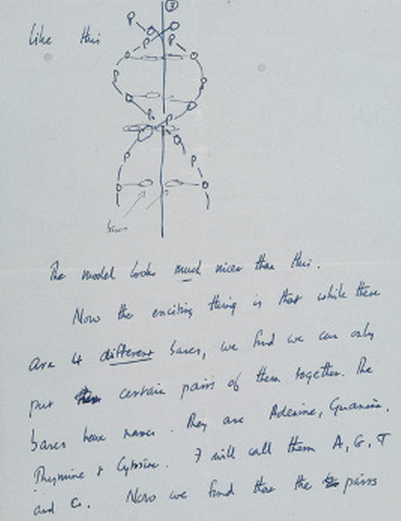 ③
Like this
P
P
P
P
P
P
P
P
P
bases
The model looks much nicer than this.
Now the exciting thing is that while there
are 4 different bases, we find we can only
put certain pairs of them together. The
bases have names. They are Adenine, Guanine,
Thymine & Cytosine. I will call them A, G, T
and C. Now we find that the pairs